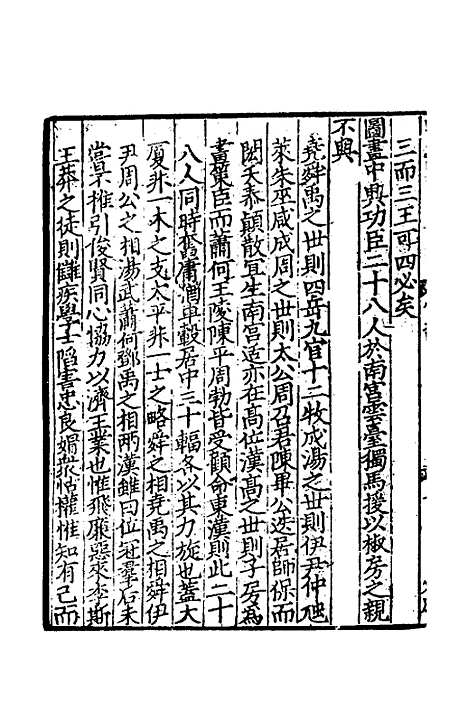 三而三王可四必矣
圖畫中興功臣二十八人於南宮雲臺獨馬援以椒房之親
不與
堯舜禹之世則四岳九官十二牧成湯之世則伊尹仲虺
萊朱巫咸成周之世則太公周召君陳畢公迭居師保而
閎夭泰顛散宜生南宮适亦在高位漢高之世則子房為
畫策臣而蕭何王陵陳平周勃皆受顧命東漢則此二十
八人同時奮庸猶車轂居中三十輻各以其力旋也蓋大
厦非一木之支太平非一士之略舜之相堯禹之相舜伊
尹周公之相湯武蕭何鄧禹之相兩漢雖曰位冠羣后未
嘗不推引俊賢同心協力以濟王業也惟飛廉惡來李斯
王莽之徒則讎疾學士隱害忠良媢嫉怙權惟知有己而